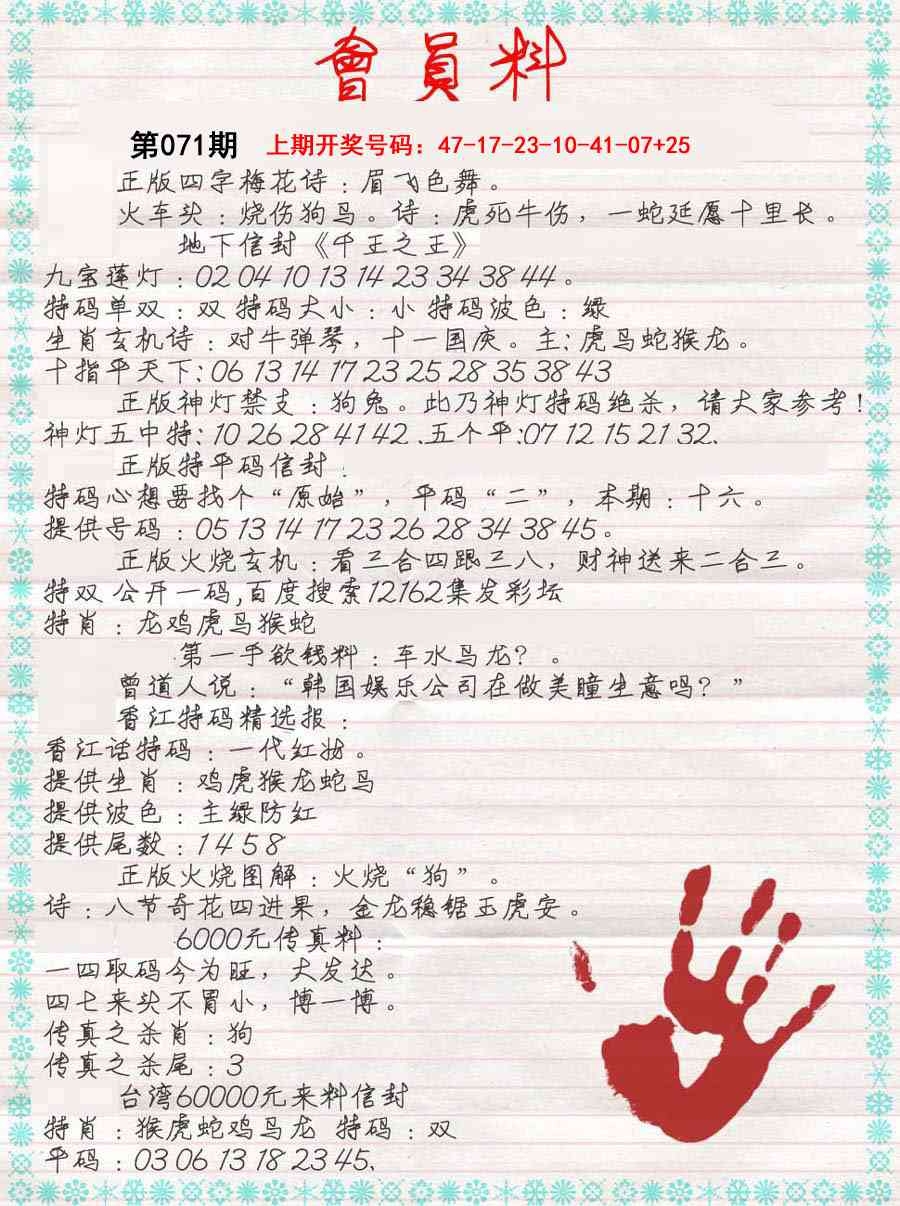 會員料
第071期 上期开奖号码：47-17-23-10-41-07+25
正版四字梅花诗：眉飞色舞。
火车头：烧伤狗马。诗：虎死牛伤，一蛇延愿十里长。
地下信封《千王之王》
九宝莲灯：02 04 10 13 14 23 34 38 44。
特码单双：双 特码大小：小 特码波色：绿
生肖玄机诗：对牛弹琴，十一国庆。主：虎马蛇猴龙。
十指平天下：06 13 14 17 23 25 28 35 38 43
正版神灯禁支：狗兔。此乃神灯特码绝杀，请大家参考！
神灯五中特：10 26 28 41 42 .五个平:07 12 15 21 32.
正版特平码信封：
特码心想要找个“原始”，平码“二”，本期：十六。
提供号码：05 13 14 17 23 26 28 34 38 45。
正版火烧玄机：看三合四跟三八，财神送来二合三。
特双 公开一码,百度搜索12162集发彩坛
特肖：龙鸡虎马猴蛇
第一手欲钱料：车水马龙？。
曾道人说：“韩国娱乐公司在做美瞳生意吗？”
香江特码精选报：
香江话特码：一代红妆。
提供生肖：鸡虎猴龙蛇马
提供波色：主绿防红
提供尾数：1 4 5 8
正版火烧图解：火烧“狗”。
诗：八节奇花四进果，金龙稳锯玉虎安。
6000元传真料：
一四取码今为旺，大发达。
四七来头不冒小，博一博。
传真之杀肖：狗
传真之杀尾：3
台湾60000元来料信封
特肖：猴虎蛇鸡马龙 特码：双
平码：03 06 13 18 23 45.